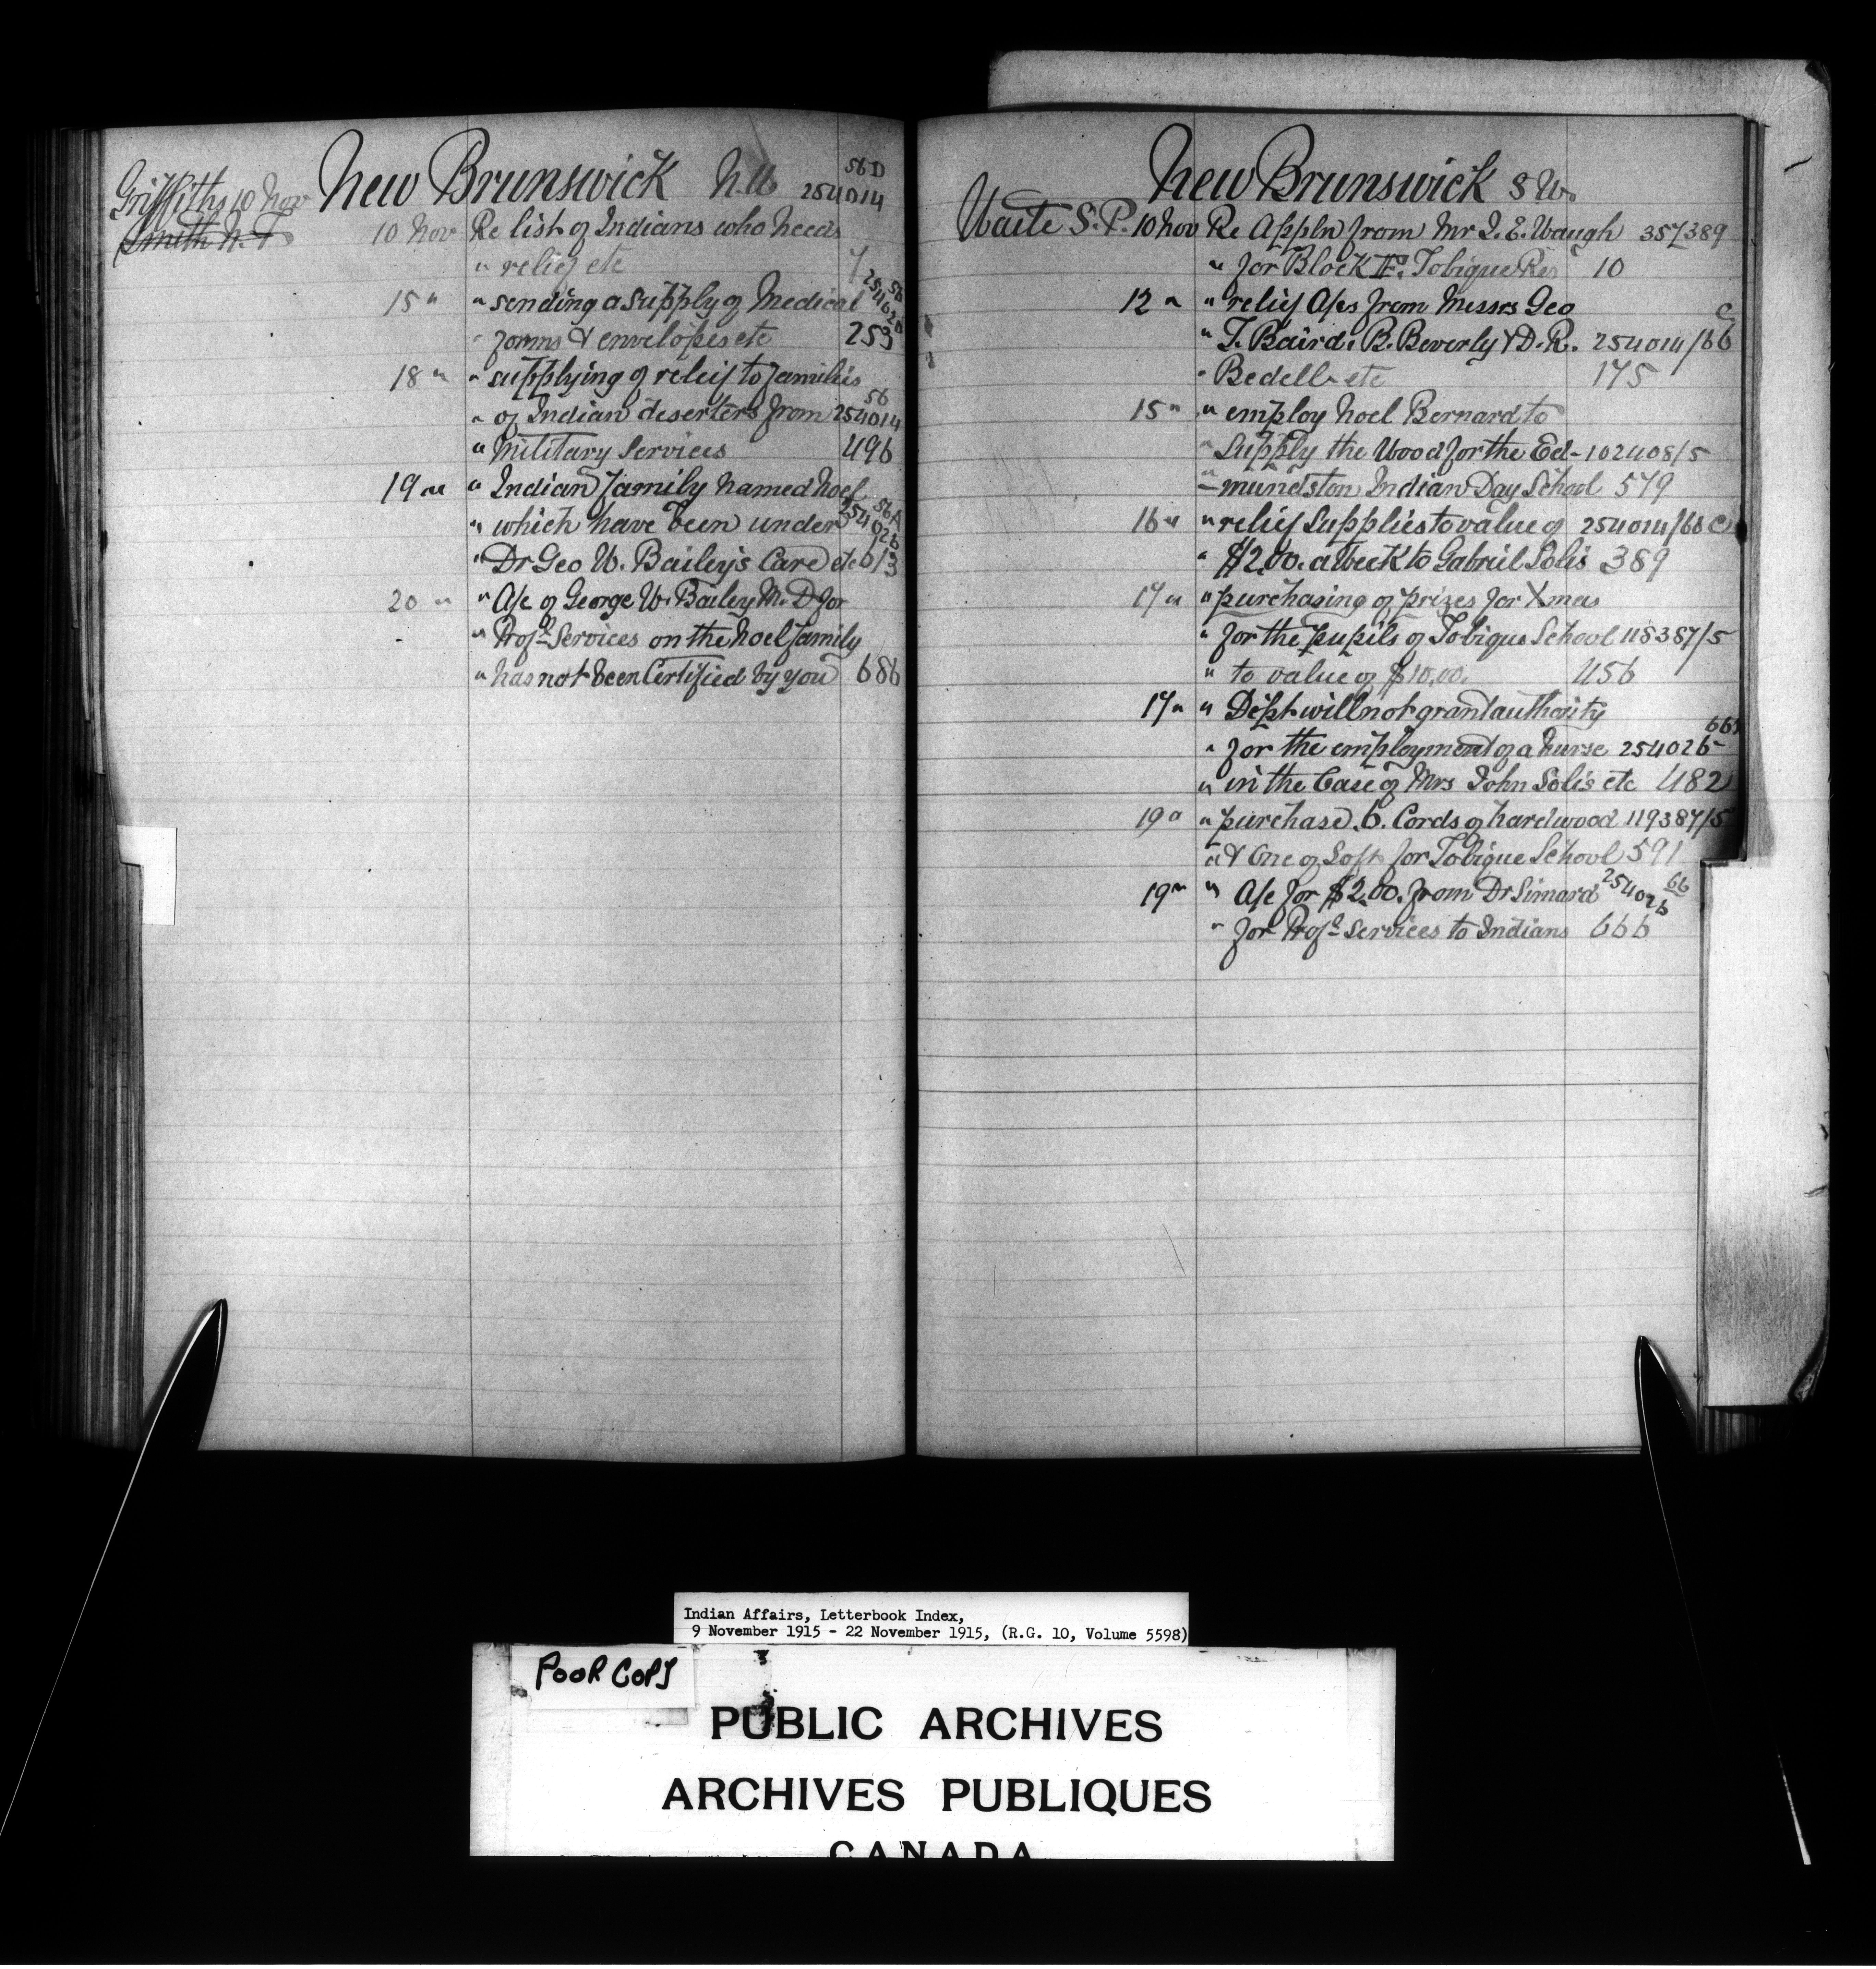 New Brunswick N.W. 56D
Griffiths 10 Nov 254014
Smith N. F
10 Nov Re list of Indians who needs
" relief etc 7
15 " " sending a supply of Medical 254020 56
" forms & envelopes etc 253
18 " " supplying of relief to families
" of Indian deserters from 254014 56
" Military Services 496
19 " " Indian family named Noel
" which have been under 254026 56A
" Dr Geo W. Bailey's Care etc 613
20 " " A/c of George W. Bailey M.D for
" Profl Services on the Noel family
" has not been Certified by you 686
New Brunswick S W.
Waite S.P. 10 Nov Re Appln from Mr I. E. Waugh 357389
" for Block F. Tobique Res 10
12 " " relief A/cs from Messrs Geo
" T. Baird, B. Beverly & D. R. 254014/66 C
" Bedell etc 175
15 " " employ Noel Bernard to
" Supply the Wood for the Ed- 102408/5
" -mundston Indian Day School 579
16 " " relief Supplies to value of 254014/66 C
" $2.00. a Week to Gabriel Solis 389
17 " " purchasing of prizes for Xmas
" for the pupils of Tobique School 118387/5
" to value of $10.00. 456
17 " " Dept will not grant authority
" for the employment of a Nurse 254026-66
" in the Case of Mrs John Solis etc 482
19 " " purchase .6. Cords of hardwood 119387/5
" & One of Soft for Tobique School 591
19 " " A/c for $2.00. from Dr Simard 254026 66
" for Profl Services to Indians 666
Indian Affairs, Letterbook Index,
9 November 1915 - 22 November 1915, (R.G. 10, Volume 5598)
POOR COPY
PUBLIC ARCHIVES
ARCHIVES PUBLIQUES
CANADA